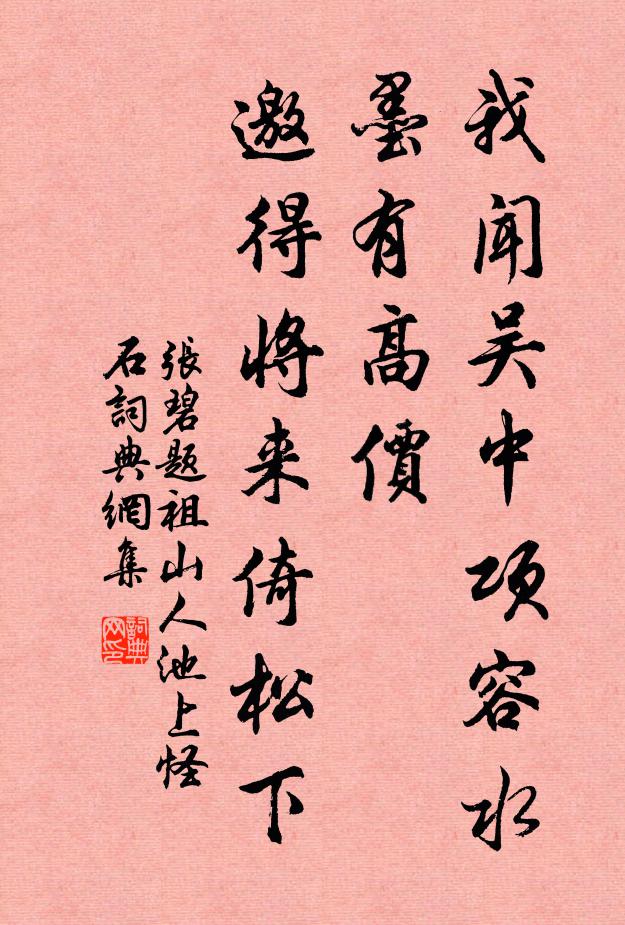 我闻吴中项容水
墨有高價
邀得将来倚松下
張碧题祖山人池上怪
石詞典網集
詞典网印